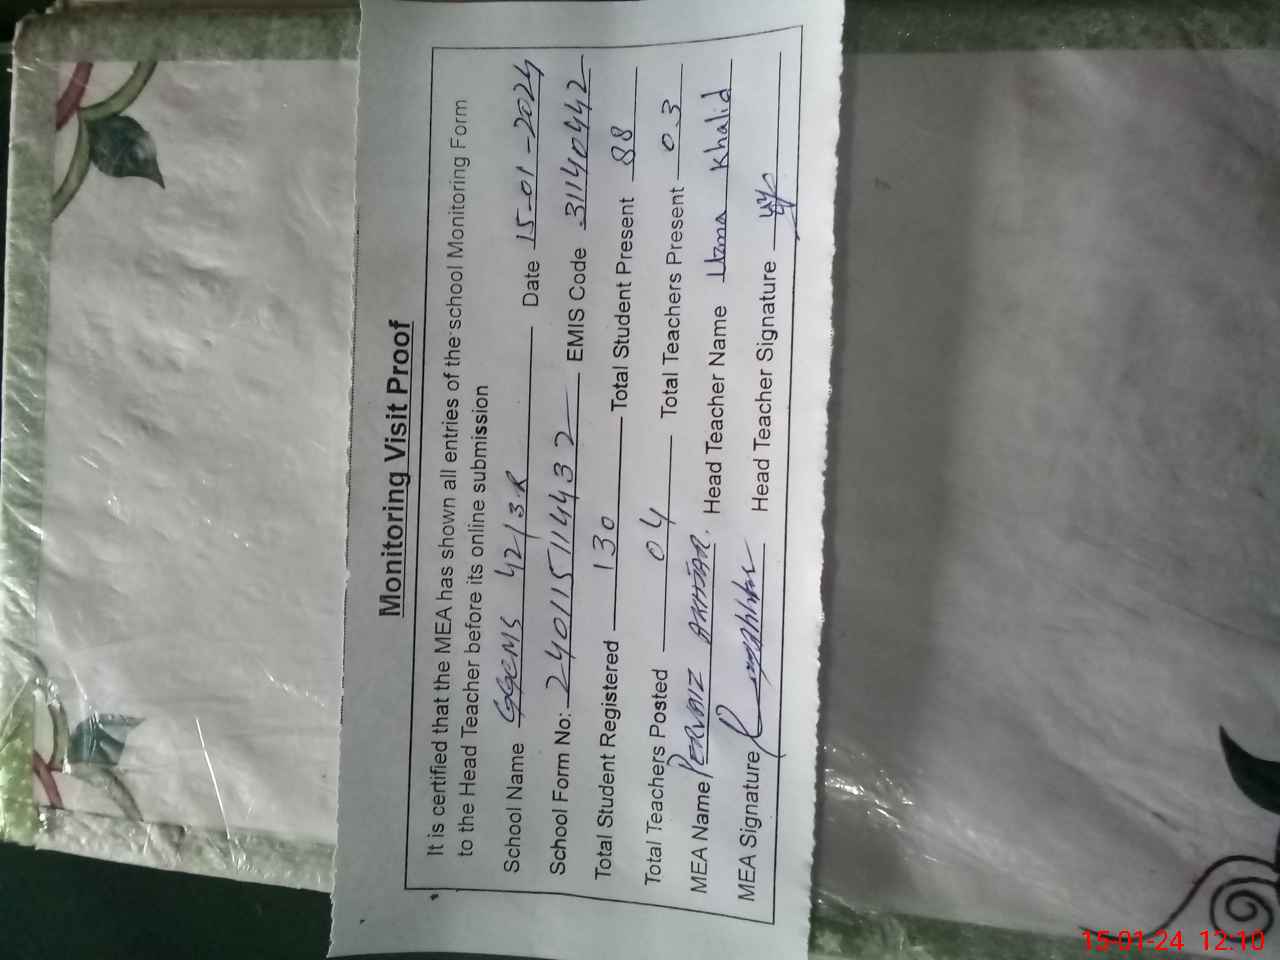 Monitoring Visit Proof
It is certified that the MEA has shown all entries of the school Monitoring Form
to the Head Teacher before its online submission
School Name GGCMS 42/3.R Date 15-01-2024
School Form No: 2401151144 32 EMIS Code 31140442
Total Student Registered 130 Total Student Present 88
Total Teachers Posted 04 Total Teachers Present 03
MEA Name PERVAIZ AKHTAR. Head Teacher Name Uzma Khalid
MEA Signature Head Teacher Signature
15-01-24 12:10